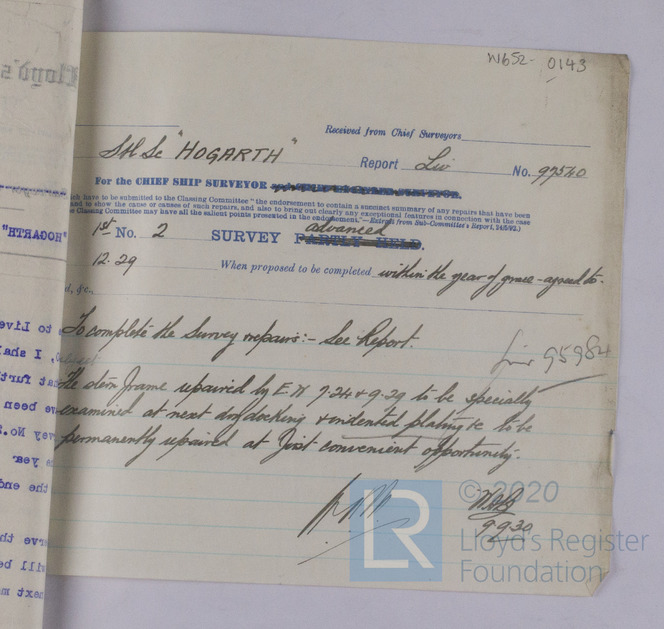 W652-0143
Received from Chief Surveyors
"HOGARTH"
Report Liv No. 97540
For the CHIEF SHIP SURVEYOR
ich have to be submitted to the Classing Committee "the endorsement to contain a succinct summary of any repairs that have been
and to show the cause or causes of such repairs, and also to bring out clearly any exceptional features in connection with the case
e Classing Committee may have all the salient points presented in the endorsement."—Extract from Sub-Committee's Report, 24/5/92.)
advanced
1st No. 2 SURVEY PARTLY HELD.
12.29 When proposed to be completed within the year of grace - agreed to.
d, &c.,
To complete the Survey repairs:- See Report.
Liv 95984
The stern frame repaired by E.W 9.24 & 9.29 to be specially
examined at next drydocking & indented plating &c to be
permanently repaired at first convenient opportunity.
9.9.30
LR
© 2020
Lloyd's Register
Foundation
Lloyd's
"HOGARTH"
to Live
, I shal
furt
been
vey No.
year
the end
ve th
ill be
next m